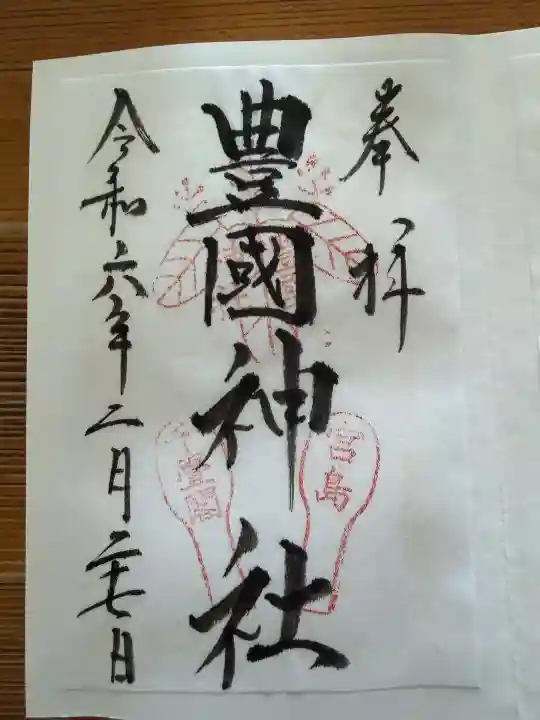 奉拝
豊國神社
宮島
令和六年二月二十七日